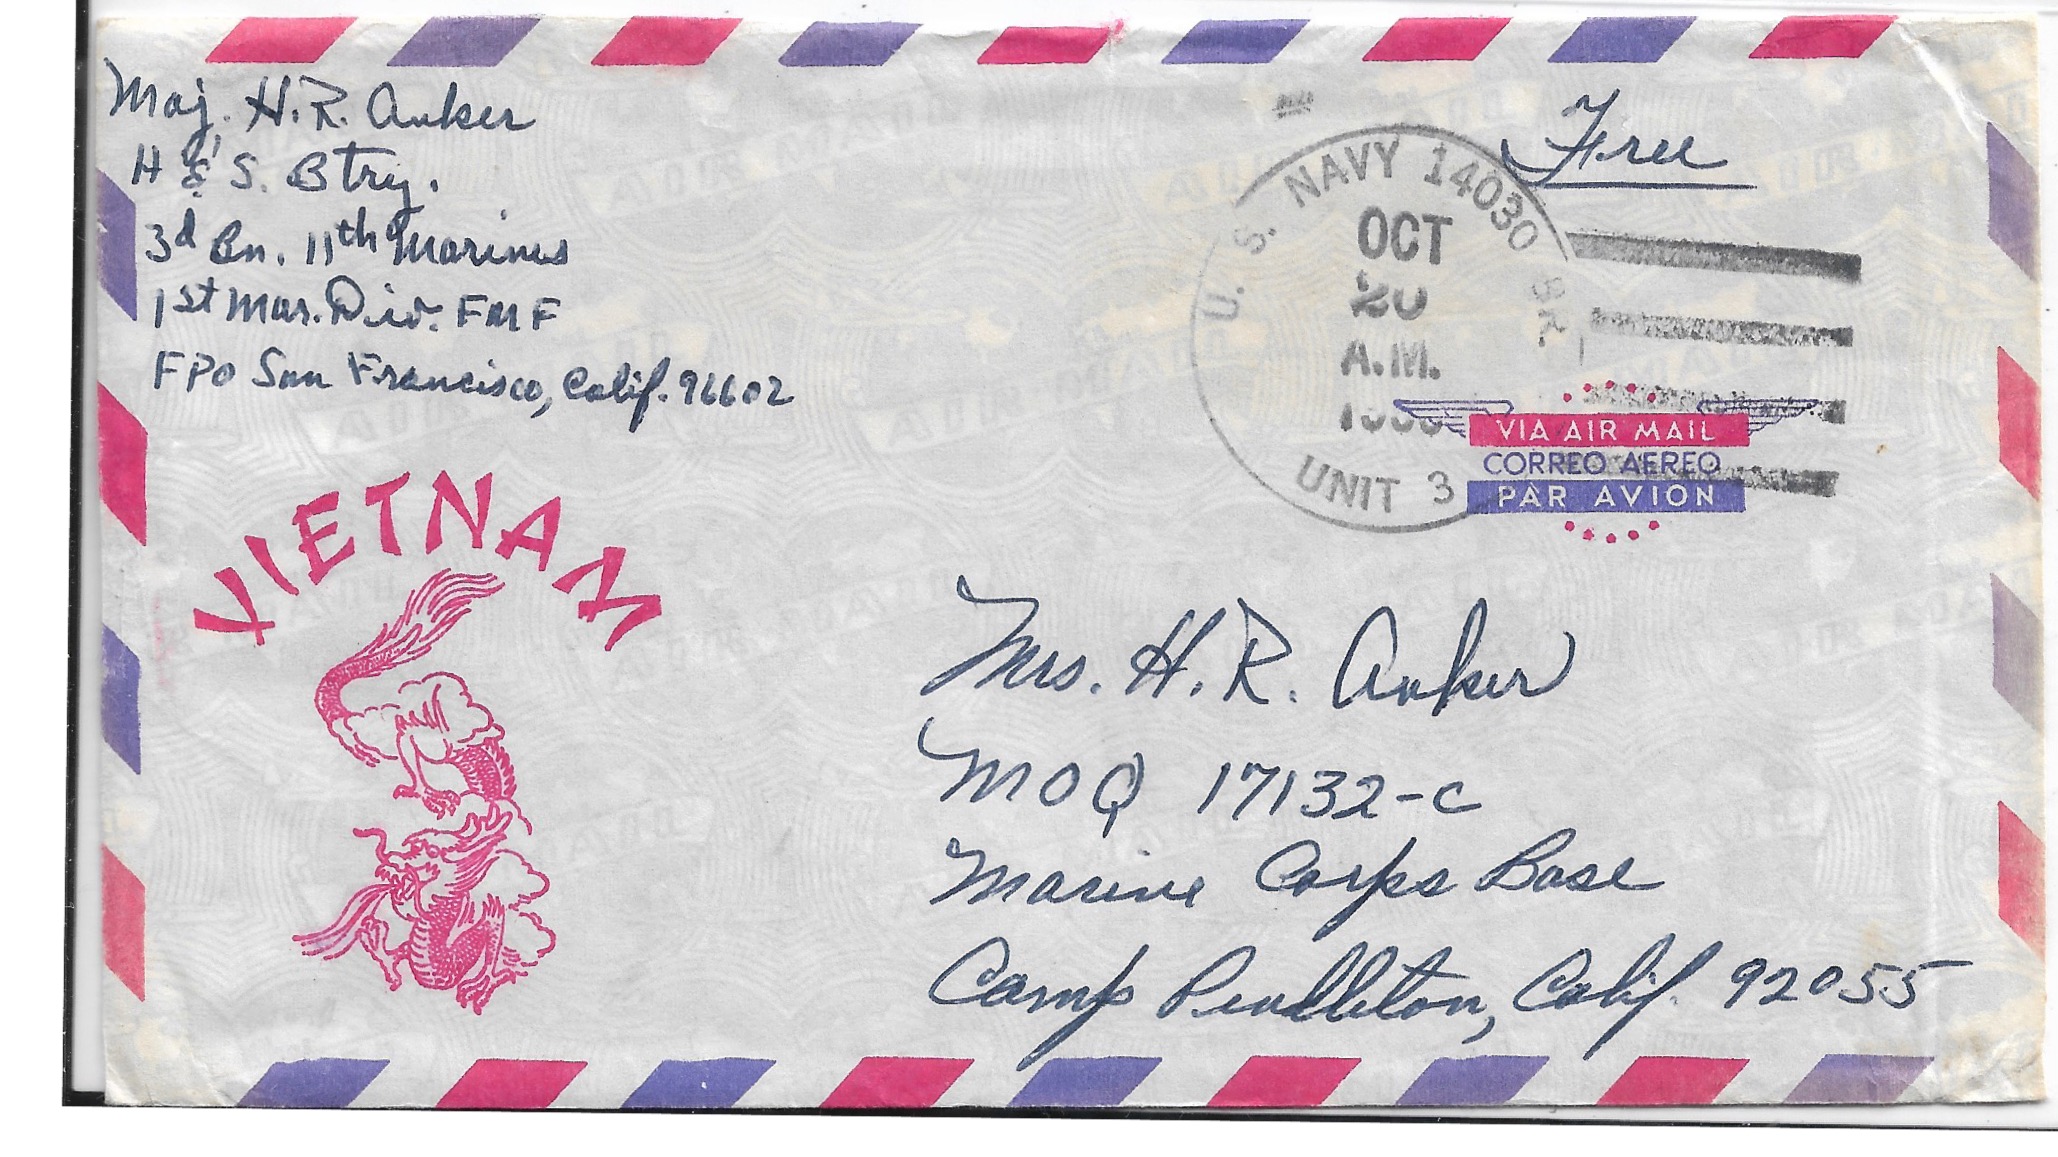 Maj. H. R. Anker
H & S. Btry.
3d Bn. 11th Marines
1st Mar. Div. FMF
FPO San Francisco, Calif. 96602
Free
U. S. NAVY 14030 BR.
OCT
20
A.M.
UNIT 3
VIA AIR MAIL
CORREO AEREO
PAR AVION
VIETNAM
Mrs. H. R. Anker
MOQ 17132-C
Marine Corps Base
Camp Pendleton, Calif. 92055